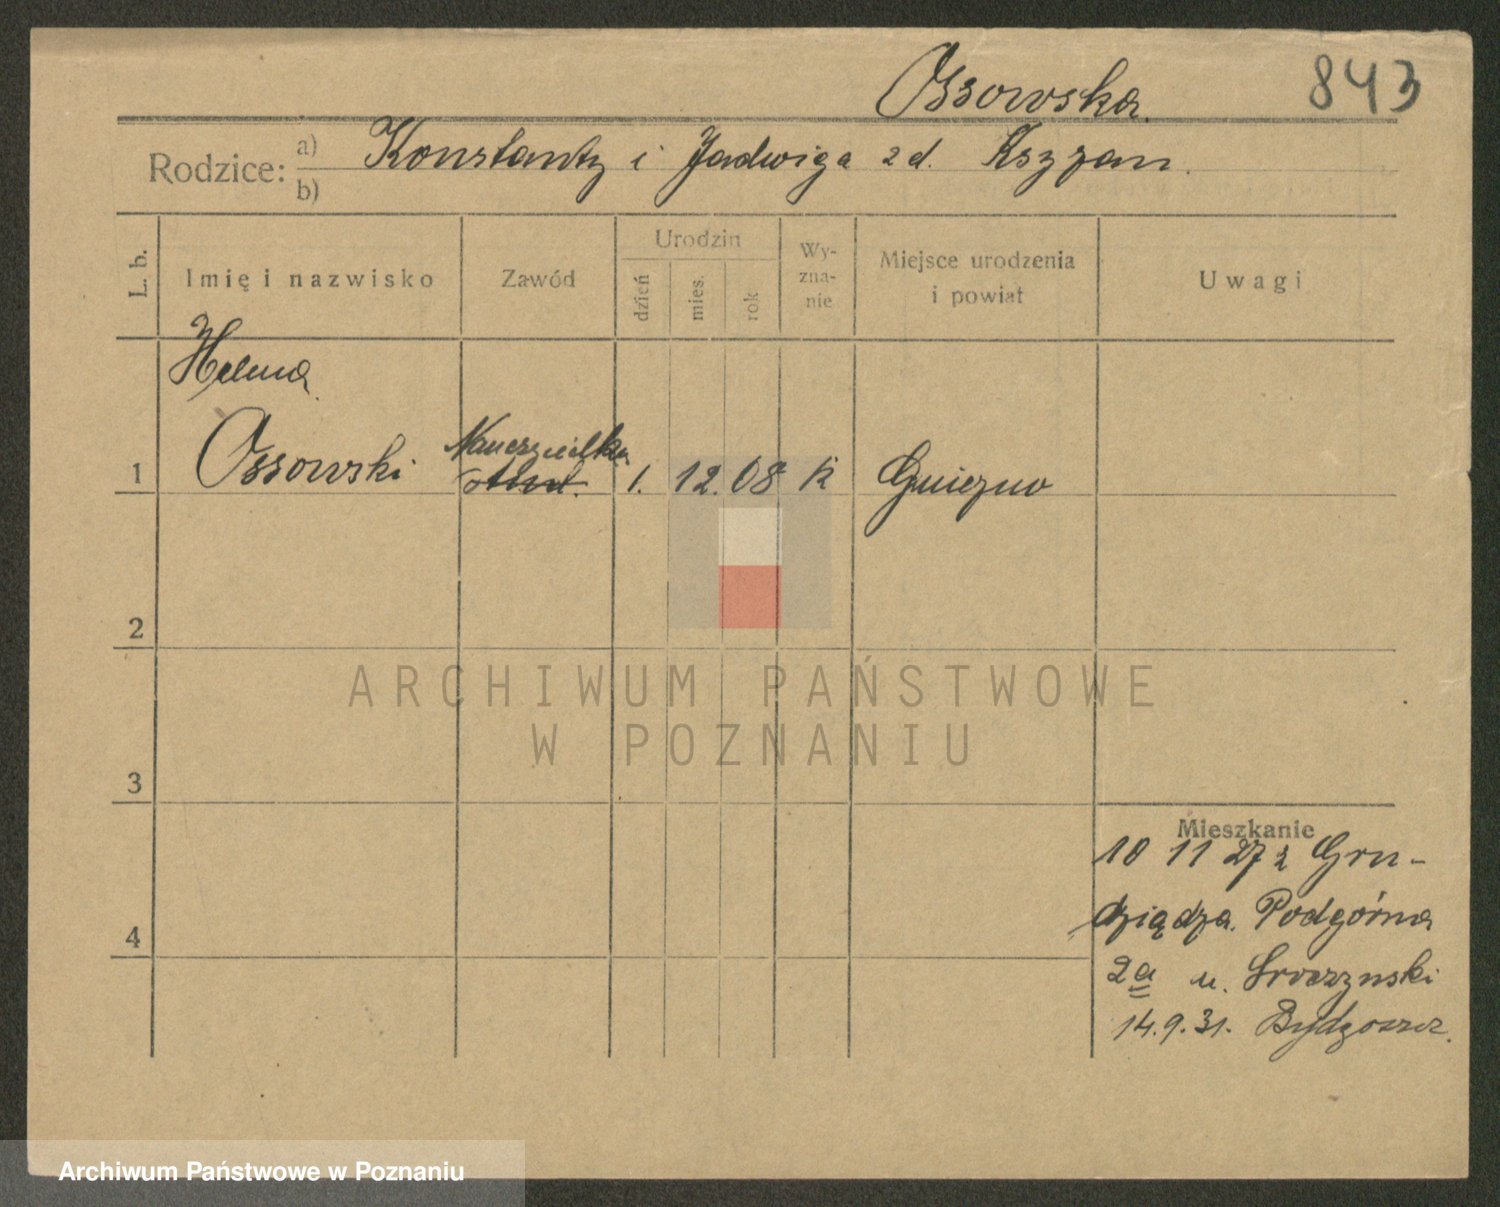 Ossowska. 843
Rodzice: a) Konstanty i Jadwiga z d.
b)
L. b. Imię i nazwisko Zawód Urodzin dzień mies. rok Wy-zna-nie Miejsce urodzenia i powiat Uwagi
Helena
Nauczycielka
1 Ossowski 1. 12. 08 k Gniezno
2
3
Mieszkanie
10 11 27 z Gru-
4 dziądza. Podgórna
2a u.
14.9.31. Bydgoszcz.
ARCHIWUM PAŃSTWOWE
W POZNANIU
Archiwum Państwowe w Poznaniu